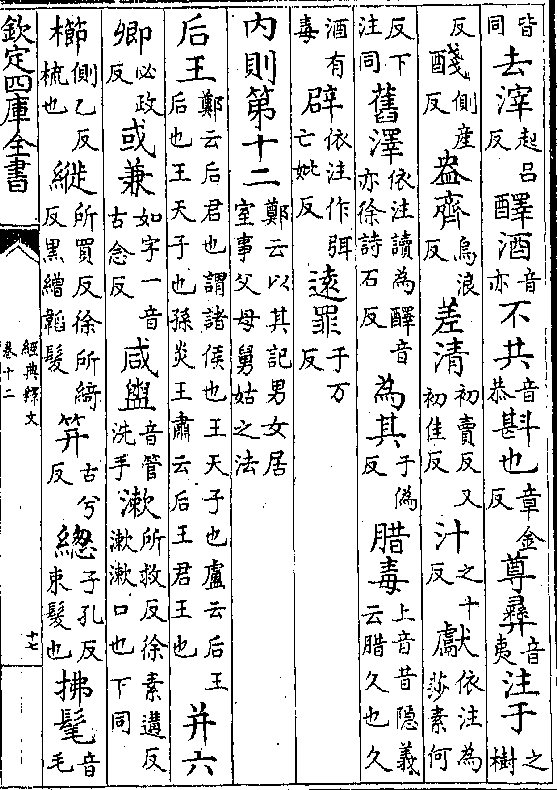 皆同去滓起呂反醳酒音亦不共音恭斟也章金反尊彛音夷注于之樹
反醆側産反盎齊烏浪反差清初賣反又初佳反汁之十反獻依注為莎素何
反下注同舊澤依注讀為醳音亦徐詩石反為其子偽反腊毒上音昔隠義云腊久也久
酒有毒辟依注作弭亡妣反逺罪于万反
内則第十二鄭云以其記男女居室事父母舅姑之法
后王鄭云后君也謂諸侯也王天子也盧云后王后也王天子也孫炎王肅云后王君王也并六
卿必政反或兼如字一音古念反咸盥音管洗手漱所救反徐素遘反漱漱口也下同
櫛側乙反梳也縰所買反徐所綺反黒繒韜髮笄古兮反緫子孔反束髮也拂髦音毛
欽定四庫全書
經典釋文
卷十二
十七